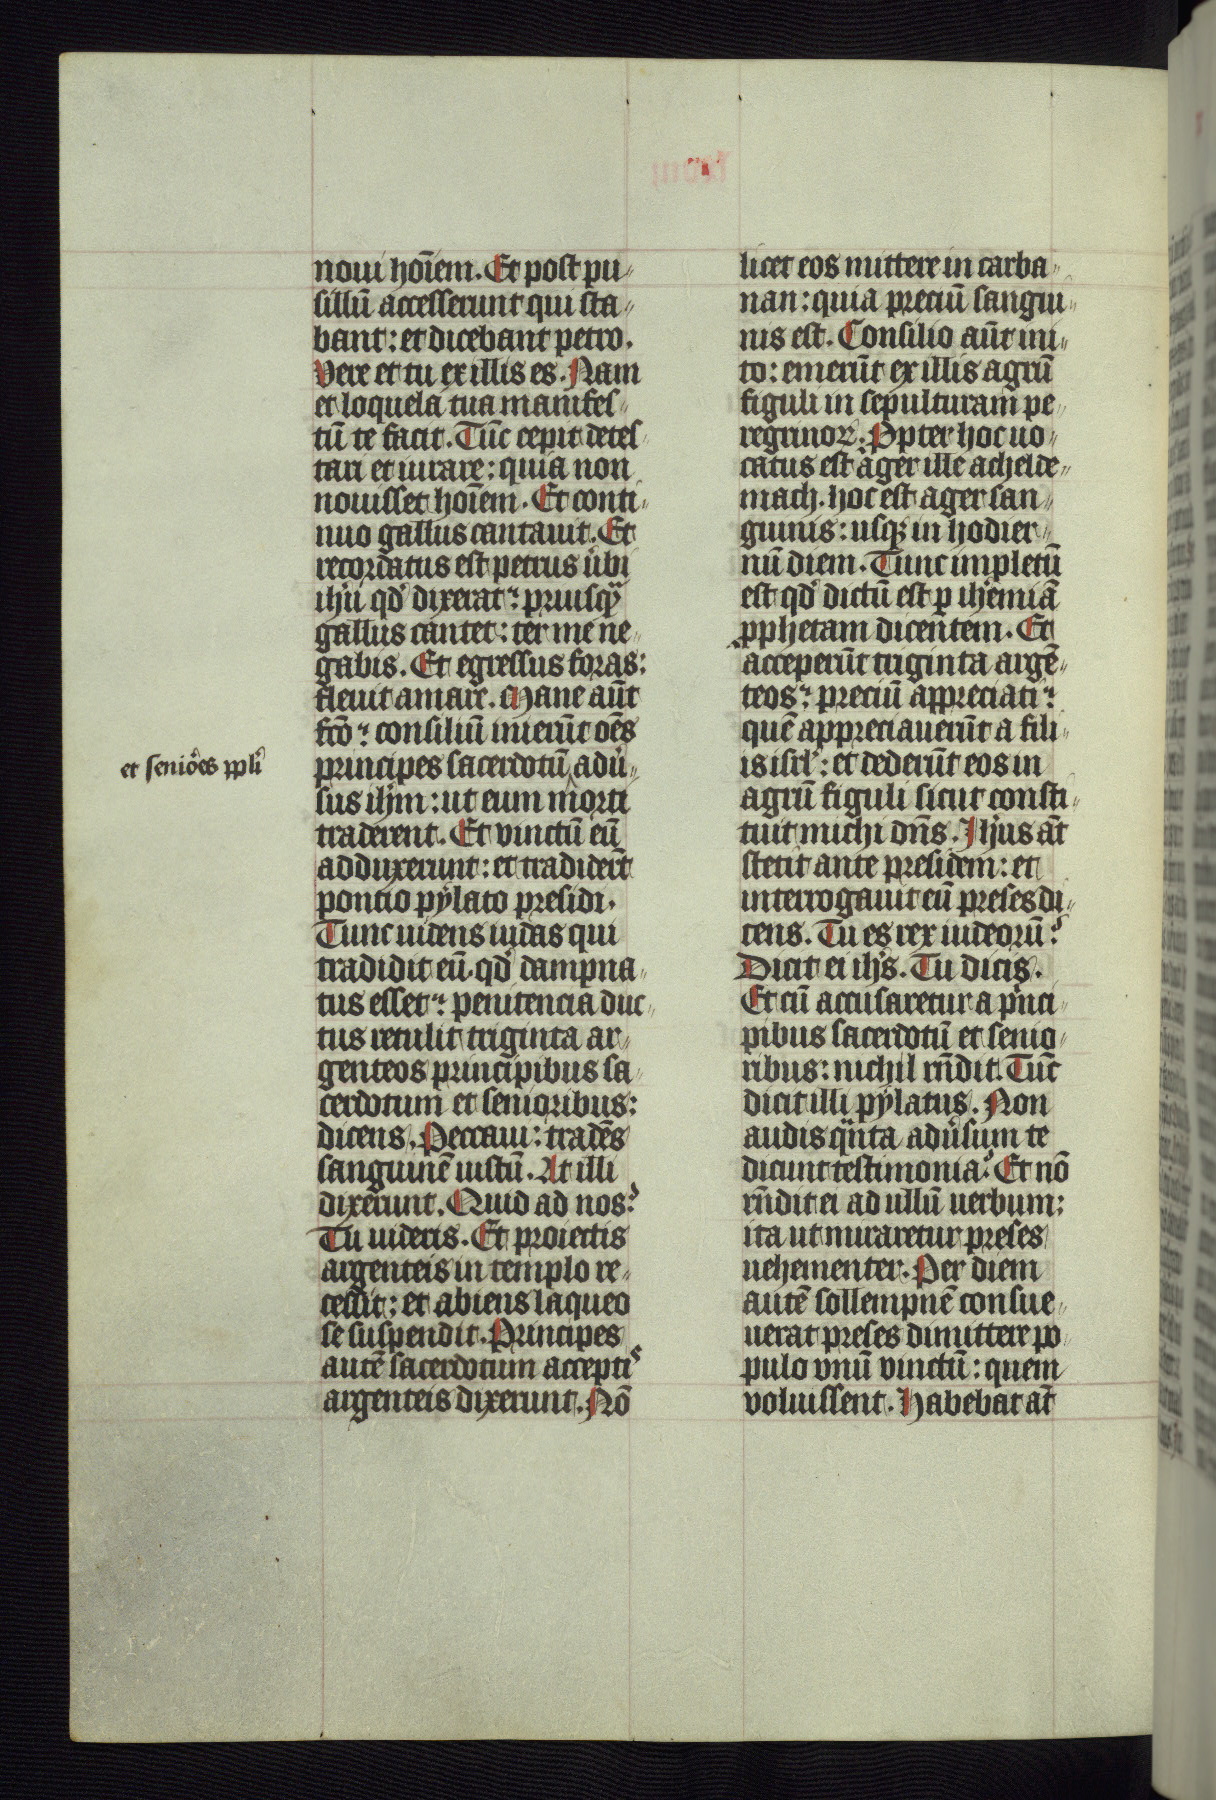 noui hoīem. Et post pu〃
sillū accesserunt qui sta〃
bant: et dicebant petro.
Vere et tu ex illis es. Nam
et loquela tua manifes〃
tū te facit. Tūc cepit detes〃
tari et iurare: quia non
nouisset hoīem. Et conti〃
nuo gallus cantauit. Et
recordatus est petrus ubi
ihu qd dixerat: priusqͣ
gallus cantet: ter me ne〃
gabis. Et egressus foras:
fleuit amare. Mane aūt
fcō: consiliū inierūt oēs
et seniōes ppli
principes sacerdotū adu〃
sus ihm: ut eum morti
traderent. Et vinctū eū
adduxerunt: et tradiderūt
pontio pylato presidi.
Tunc uidens iudas qui
tradidit eū. qd dampna〃
tus esset: penitencia duc〃
tus retulit triginta ar〃
genteos principibus sa〃
cerdotum et senioribus:
dicens. Peccaui: tradēs
sanguinē iustū. At illi
dixerunt. Quid ad nos?
Tu uideris. Et proiectis
argenteis in templo re〃
cessit: et abiens laqueo
se suspendit. Principes
autē sacerdotum acceptis
argenteis dixerunt. Nō
licet eos mittere in carba〃
nan: quia preciū sangui〃
nis est. Consilio aūt ini〃
to: emerūt ex illis agrū
figuli in sepulturam pe〃
regrinoꝝ. Ppter hoc uo〃
catus est ager ille achelde〃
mach. hoc est ager san〃
guinis: usqꝫ in hodier〃
nū diem. Tunc impletū
est qd dictū est p ihemiā
pphetam dicentem. Et
acceperūt triginta argē〃
teos: preciū appreciati:
quē appreciauerūt a fili〃
is isrl: et dederūt eos in
agrū figuli sicut consti〃
tuit michi dn̄s. Ihus āt
stetit ante presidem: et
interrogauit eū preses di〃
cens. Tu es rex iudeorū?
Dicit ei ihs. Tu dicis.
Et cū accusaretur a pͥnci〃
pibus sacerdotū et senio〃
ribus: nichil rn̄dit. Tūc
dicit illi pylatus. Non
audis qͣnta adusum te
dicunt testimonia? Et nō
rn̄dit ei ad ullū uerbum:
ita ut miraretur preses
uehementer. Per diem
autē sollempnē consue〃
uerat preses dimittere po〃
pulo vnū vinctū: quem
voluissent. Habebat āt